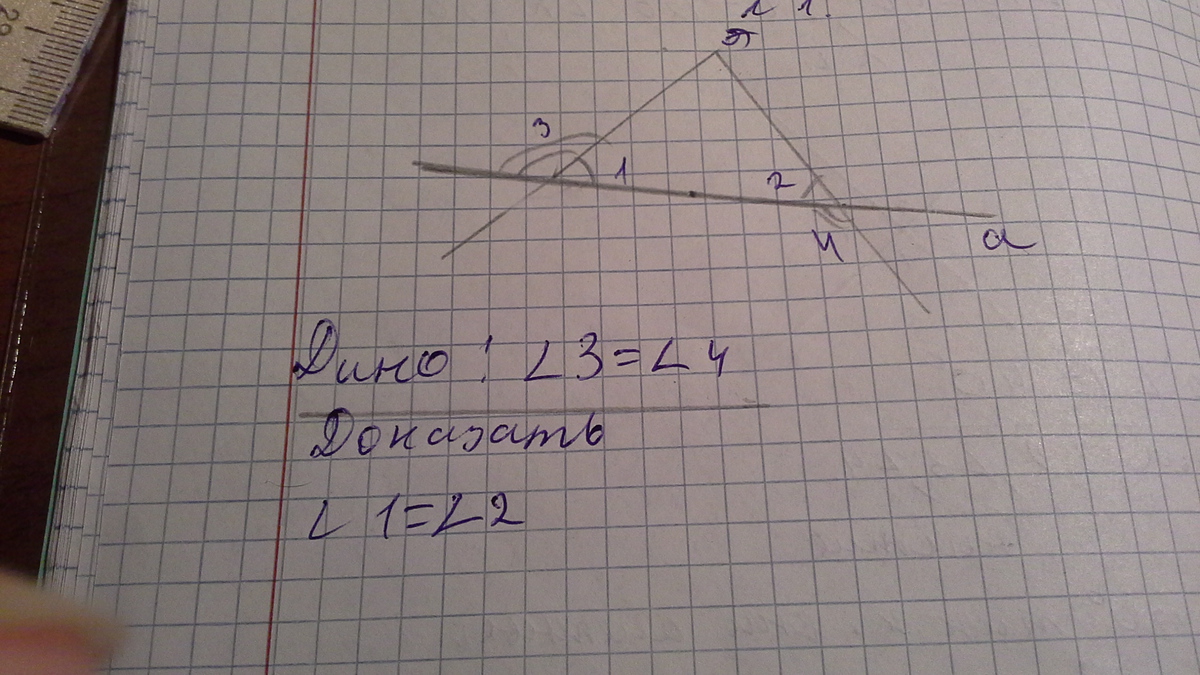 3
1
2
4
a
Дано: ∠3=∠4
Доказать
∠1=∠2